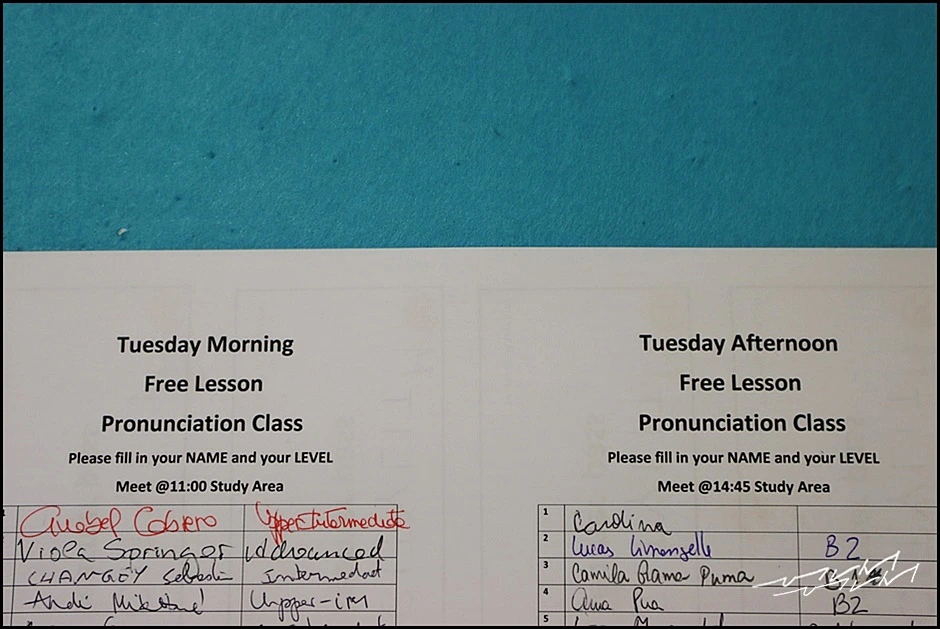 Tuesday Morning
Free Lesson
Pronunciation Class
Please fill in your NAME and your LEVEL
Meet @11:00 Study Area
Cabrero Upper Intermediate
Viola Springer Advanced
CHANGEY Sebasti Intermediat
Andi Unpper-im
Tuesday Afternoon
Free Lesson
Pronunciation Class
Please fill in your NAME and your LEVEL
Meet @14:45 Study Area
1 Carolina
2 Lucas B2
3 Camila Rama Puma
4 Ana Pua B2
5